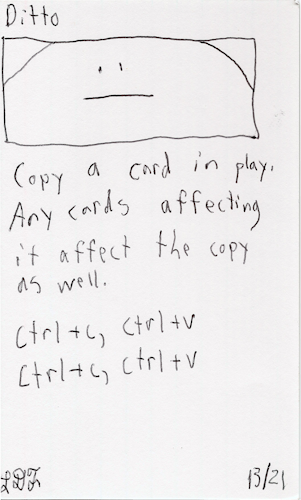 Ditto
Copy a card in play.
Any cards affecting
it affect the copy
as well.
Ctrl+c, Ctrl+v
Ctrl+c, Ctrl+v
13/21